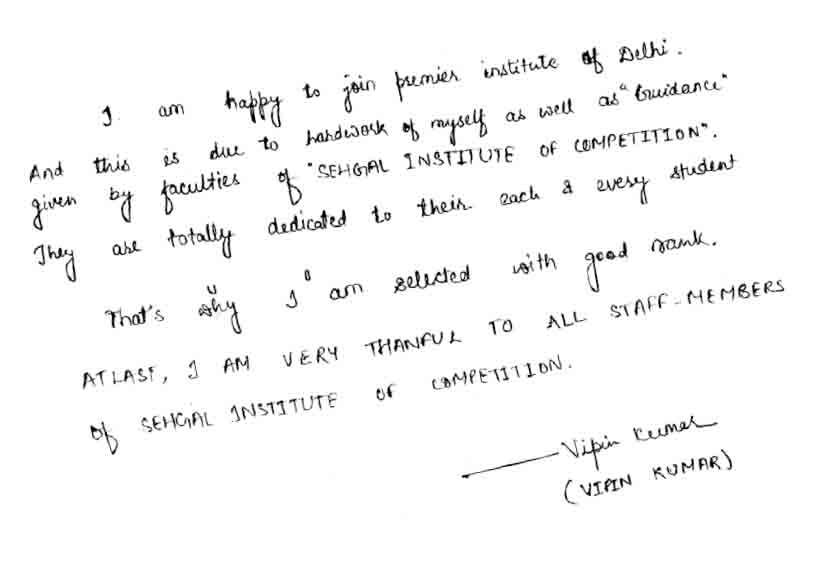 I am happy to join premier institute of Delhi.
And this is due to hardwork of myself as well as "Guidance"
given by faculties of "SEHGAL INSTITUTE OF COMPETITION".
They are totally dedicated to their each & every student
That's why I am selected with good rank.
AT LAST, I AM VERY THANFUL TO ALL STAFF-MEMBERS
of SEHGAL INSTITUTE OF COMPETITION.
Vipin Kumar
(VIPIN KUMAR)